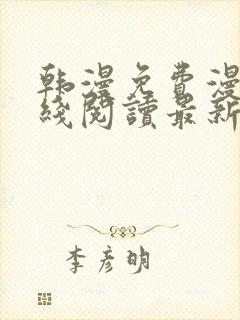 韩漫免费漫
线阅读最新
李彦明